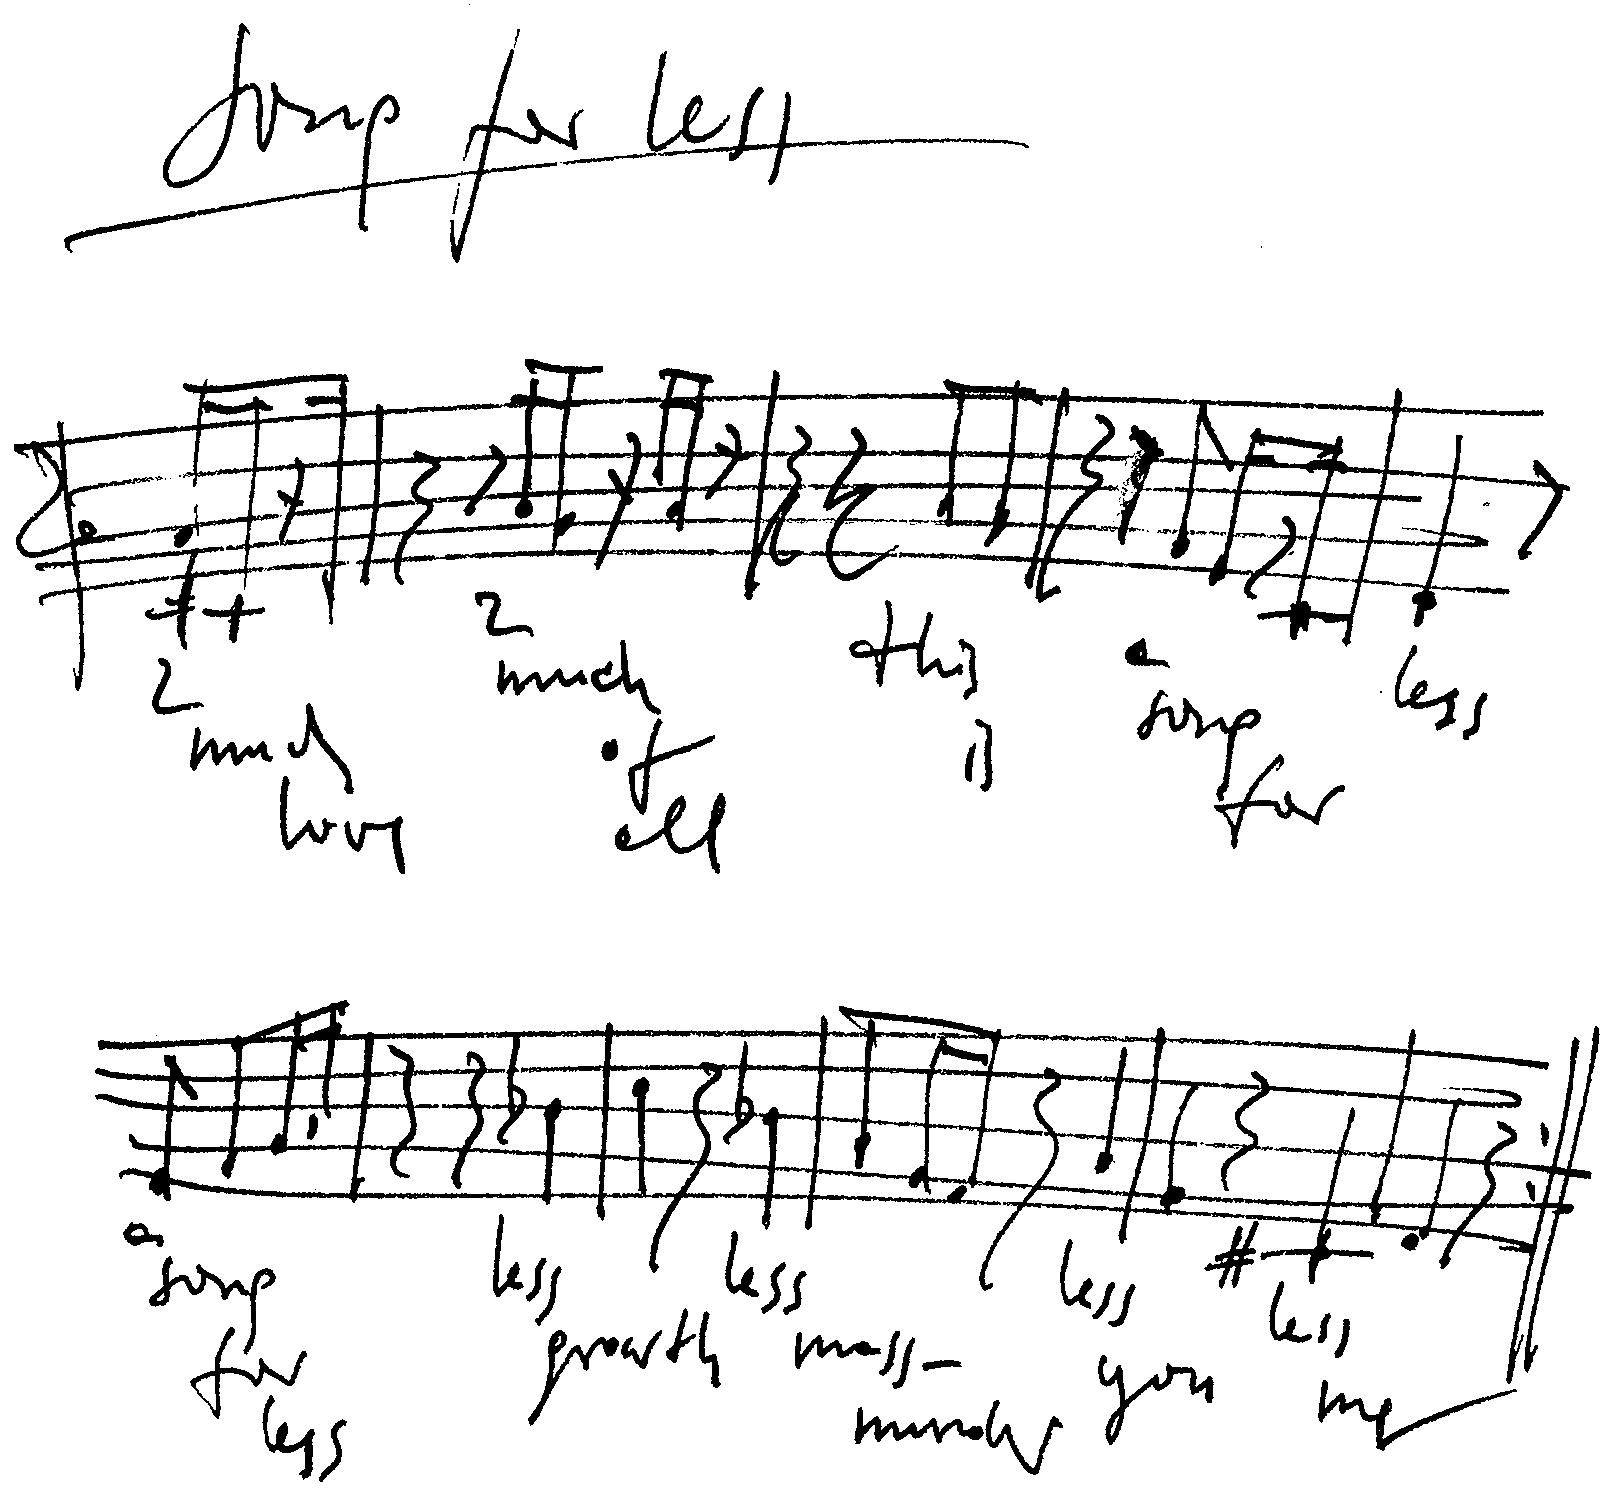 Song for less
2 much love 2 much of all this is a song for less
a song for less less growth less mass- mindy less you less me